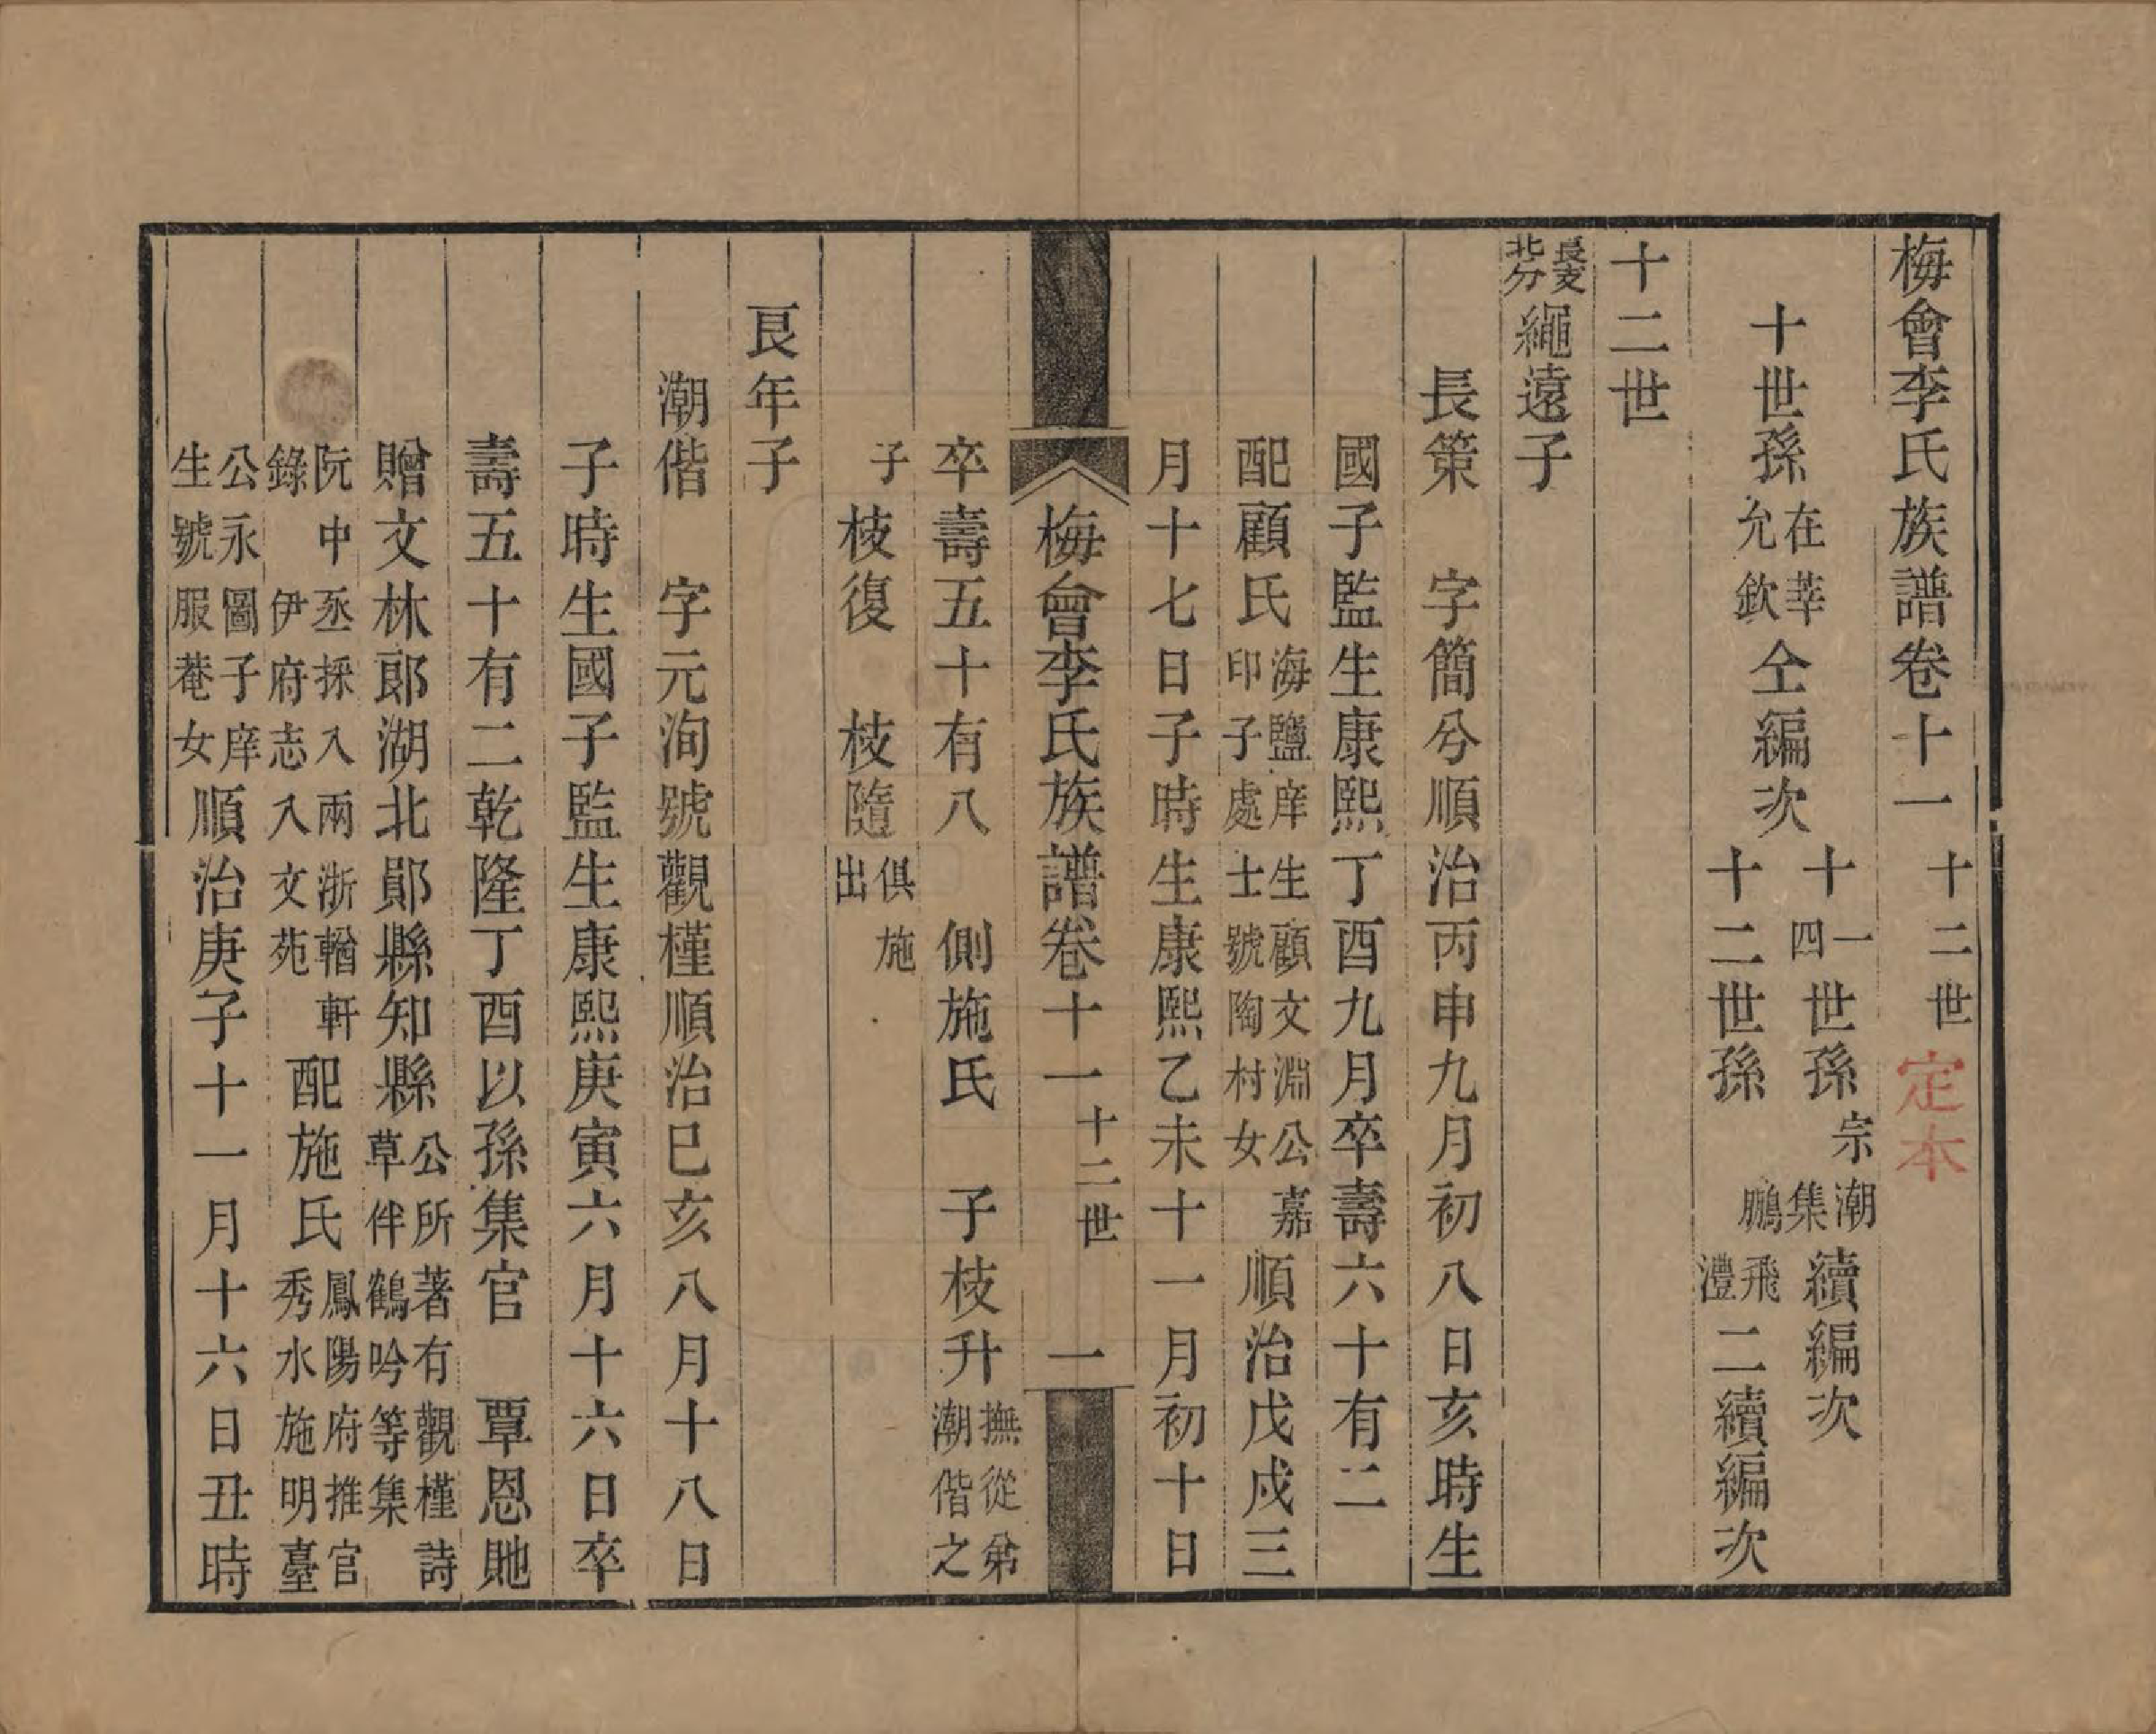 梅會李氏族譜卷十一　十二世　定本
十世孫在莘允欽仝編次　十一世孫宗潮　十四世孫集鵬　續編次　十二世孫飛澧二續編次
十二世
長支北分繩遠子
長策　字簡兮順治丙申九月初八日亥時生
國子監生康熙丁酉九月卒壽六十有二
配顧氏海鹽庠生顧文淵公嘉印子處士號陶村女順治戊戌三
月十七日子時生康熙乙未十一月初十日
梅會李氏族譜卷十一　十二世　一
卒壽五十有八　側施氏　子枝升撫從弟潮偕之
子　枝復　枝隨俱施出
艮年子
潮偕　字元洵號觀槿順治己亥八月十八日
子時生國子監生康熙庚寅六月十六日卒
壽五十有二乾隆丁酉以孫集官　覃恩貤
贈文林郎湖北鄖縣知縣公所著有觀槿詩草伴鶴吟等集
阮中丞採入兩浙輶軒錄　伊府志入文苑　配施氏鳳陽府推官秀水施明臺
公永圖子庠生號服菴女順治庚子十一月十六日丑時